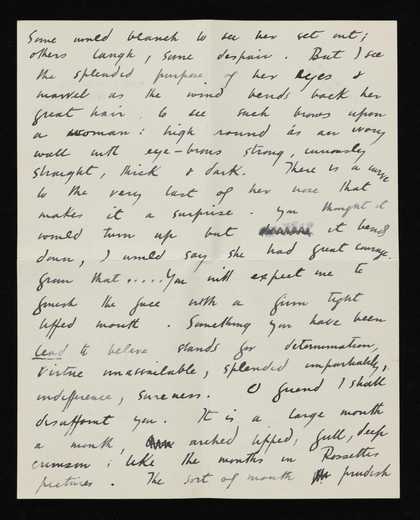 Some would blanch to see her set out;
others laugh, some despair. But I see
the splendid purpose of her eyes &
marvel as the wind bends back her
great hair to see such brows upon
a woman: high round as an ivory
wall with eye-brows strong, curiously
straight, thick & dark. There is a curve
to the very last of her nose that
makes it a surprise. You thought it
would turn up but it bends
down, I would say she had great courage
from that.....You will expect me to
finish the face with a firm tight
lipped mouth. Something you have been
lead to believe stands for determination,
virtue unassailable, splendid impartiality,
indifference, sureness. O friend I shall
disappoint you. It is a large mouth
a mouth, arched lipped, full, deep
crimson: like the mouths in Rossettis
pictures. The sort of mouth prudish